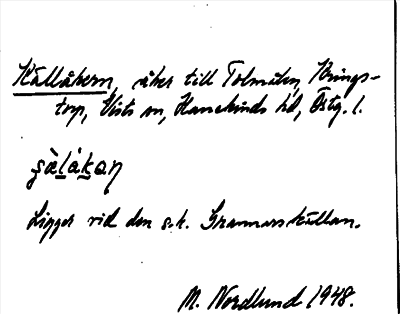 Källåkern, åker till Tolmålen, Brings-
torp, Vists sn, Hanekinds hd, Östg. l.
s̀älákaɳ
Ligger vid den s.k. Grannarskällan.
M. Nordlund 1948.